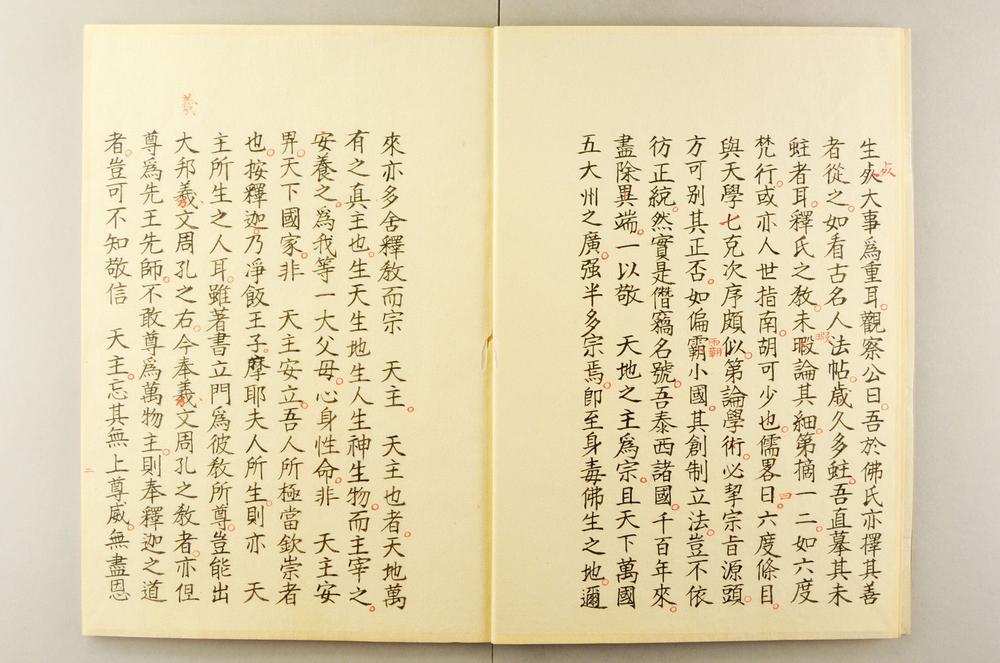 生死大事爲重耳觀察公曰吾於佛氏亦擇其善
者從之如看古名人法帖歲久多蛀吾直摹其未
蛀者耳釋氏之教未暇論其細第摘一二如六度
梵行或亦人世指南胡可少也儒畧曰六度條目
與天學七克次序頗似第論學術必挈宗旨源頭
方可别其正否如偏霸小國其創制立法豈不依
彷正統然實是僭竊名號吾泰西諸國千百年來
盡除異端一以敬 天地之主爲宗且天下萬國
五大州之廣强半多宗焉卽至身毒佛生之地邇
來亦多舍釋教而宗 天主 天主也者天地萬
有之真主也生天生地生人生神生物而主宰之
安養之爲我等一大父母心身性命非 天主安
畀天下國家非 天主安立吾人所極當欽崇者
也按釋迦乃淨飯王子摩耶夫人所生則亦 天
主所生之人耳雖著書立門爲彼教所尊豈能出
大邦羲文周孔之右今奉羲文周孔之教者亦但
尊爲先王先師不敢尊爲萬物主則奉釋迦之道
者豈可不知敬信 天主忘其無上尊威無盡恩